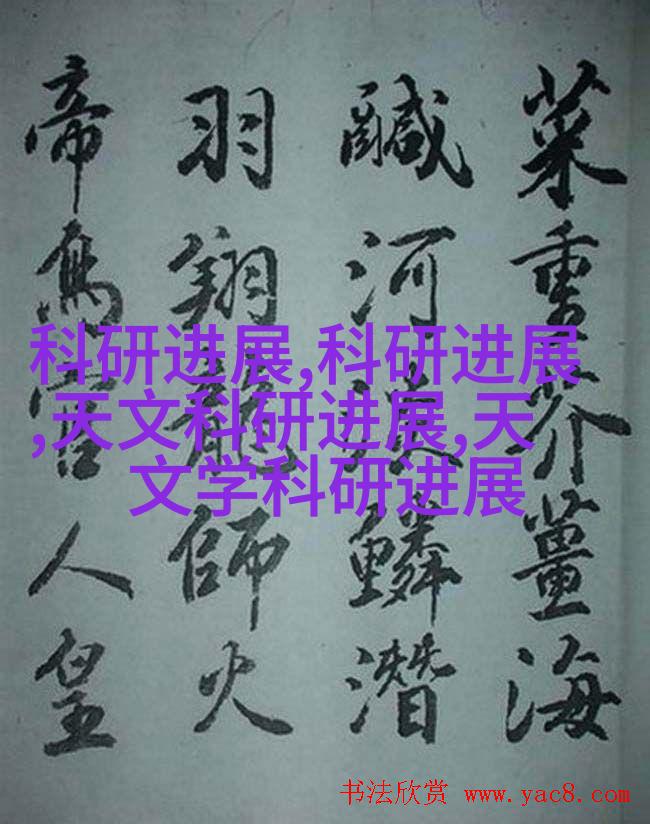 菜重芥薑海
鹹河淡鱗潛
羽翔龍師火
帝鳥官人皇
科研进展,科研进展
,天文科研进展,天
文学科研进展
书法欣赏 www.yac8.com